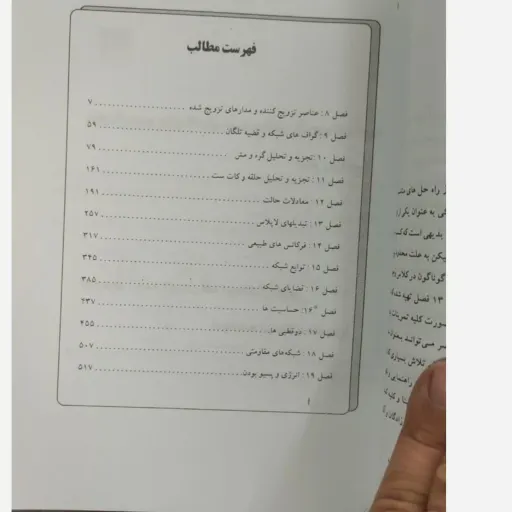 فهرست مطالب
فصل ۸ : عناصر تزویج کننده و مدارهای تزویج شده ..................... ۷
فصل ۹ : گراف های شبکه و قضیه تلگان ............................ ۵۹
فصل ۱۰ : تجزیه و تحلیل گره و مش ............................ ۷۹
فصل ۱۱ : تجزیه و تحلیل حلقه و کات ست ..................... ۱۶۱
فصل ۱۲ : معادلات حالت ..................................... ۱۹۱
فصل ۱۳ : تبدیلهای لاپلاس ................................... ۲۵۷
فصل ۱۴ : فرکانس های طبیعی ................................. ۳۱۷
فصل ۱۵ : توابع شبکه ....................................... ۳۴۵
فصل ۱۶ : قضایای شبکه ..................................... ۳۸۵
فصل ۱۶* : حساسیت ها ...................................... ۴۳۷
فصل ۱۷ : دوقطبی ها ........................................ ۴۵۵
فصل ۱۸ : شبکه‌های مقاومتی ................................. ۵۰۷
فصل ۱۹ : انرژی و پسیو بودن ................................ ۵۱۷
ر راه حل های
به عنوان یکی از
بدیهی است که
لیکن به علت
گوناگون در
۱۳ فصل تهیه شده
صورت کلیه تمرینات
می‌تواند
تلاش
راهنمایی